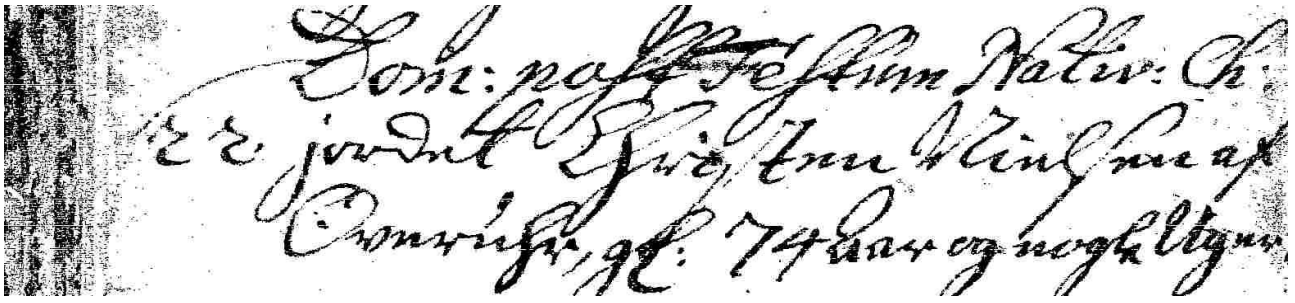 Dom: post Festum Nativ: Ch:
22. jordet Christen Nielsen af
Overuhr, gl: 74 aar og nogle Uger